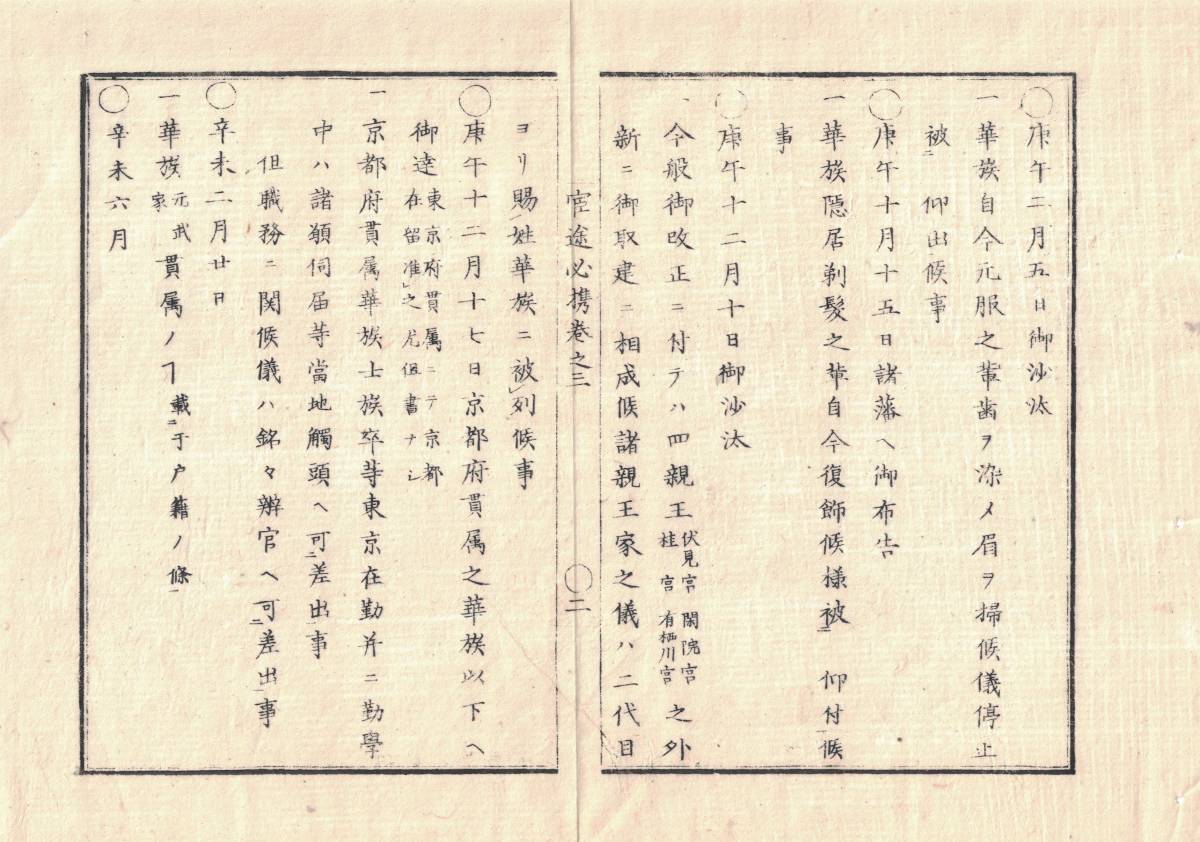 ○庚午二月五日御沙汰
一華族自今元服之輩歯ヲ染メ眉ヲ掃候儀停止
被ニ 仰出候事
○庚午十月十五日諸藩ヘ御布告
一華族隠居剃髪之輩自今復飾候様被ニ 仰付候
事
○庚午十二月十日御沙汰
一今般御改正ニ付テハ四親王 伏見宮 閑院宮 桂宮 有栖川宮 之外
新ニ御取建ニ相成候諸親王家之儀ハ二代目
官途必携巻之三 ○二
ヨリ賜姓華族ニ被列候事
○庚午十二月十七日京都府貫属之華族以下ヘ
御達 東京府貫属ニテ京都在留准之尤但書ナシ
一京都府貫属華族士族卒等東京在勤并ニ勤學
中ハ諸願伺届等當地觸頭ヘ可ニ差出一事
但職務ニ関候儀ハ銘々辨官ヘ可ニ差出一事
○辛未二月廿日
一華族 元武家 貫属ノヿ 載ニ于戸籍ノ條一
○辛未六月